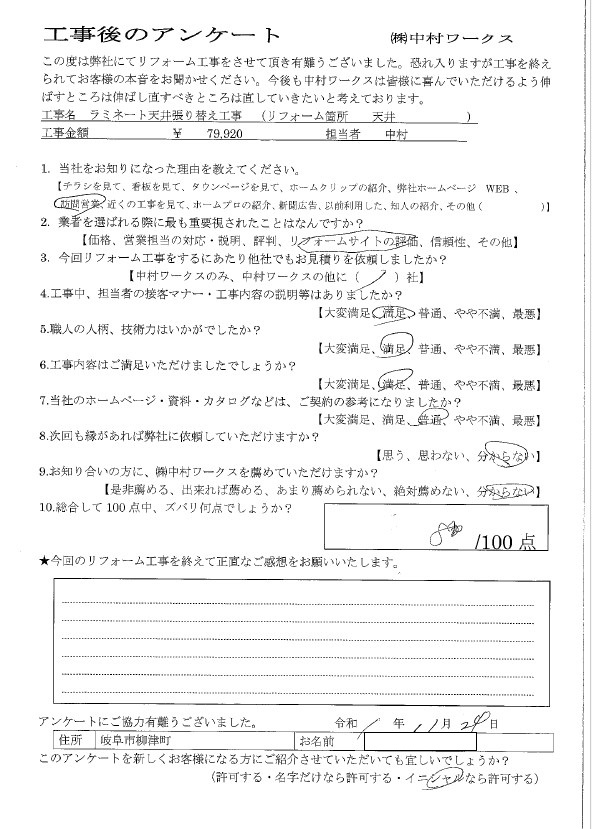 工事後のアンケート　㈱中村ワークス
この度は弊社にてリフォーム工事をさせて頂き有難うございました。恐れ入りますが工事を終え
られてお客様の本音をお聞かせください。今後も中村ワークスは皆様に喜んでいただけるよう伸
ばすところは伸ばし直すべきところは直していきたいと考えております。
工事名　ラミネート天井張り替え工事　（リフォーム箇所　天井　　　）
工事金額　￥　79,920　担当者　中村
1. 当社をお知りになった理由を教えてください。
【チラシを見て、看板を見て、タウンページを見て、ホームクリップの紹介、弊社ホームページ　WEB 、
訪問営業、近くの工事を見て、ホームプロの紹介、新聞広告、以前利用した、知人の紹介、その他（　　　）】
2. 業者を選ばれる際に最も重要視されたことはなんですか？
【価格、営業担当の対応・説明、評判、リフォームサイトの評価、信頼性、その他】
3. 今回リフォーム工事をするにあたり他社でもお見積りを依頼しましたか？
【中村ワークスのみ、中村ワークスの他に（　　）社】
4.工事中、担当者の接客マナー・工事内容の説明等はありましたか？
【大変満足、満足、普通、やや不満、最悪】
5.職人の人柄、技術力はいかがでしたか？
【大変満足、満足、普通、やや不満、最悪】
6.工事内容はご満足いただけましたでしょうか？
【大変満足、満足、普通、やや不満、最悪】
7.当社のホームページ・資料・カタログなどは、ご契約の参考になりましたか？
【大変満足、満足、普通、やや不満、最悪】
8.次回も縁があれば弊社に依頼していただけますか？
【思う、思わない、分からない】
9.お知り合いの方に、㈱中村ワークスを薦めていただけますか？
【是非薦める、出来れば薦める、あまり薦められない、絶対薦めない、分からない】
10.総合して 100 点中、ズバリ何点でしょうか？
80 /100 点
★今回のリフォーム工事を終えて正直なご感想をお願いいたします。
アンケートにご協力有難うございました。　令和 1 年 11月 29 日
住所　岐阜市柳津町　お名前
このアンケートを新しくお客様になる方にご紹介させていただいても宜しいでしょうか？
（許可する・名字だけなら許可する・イニシャルなら許可する）